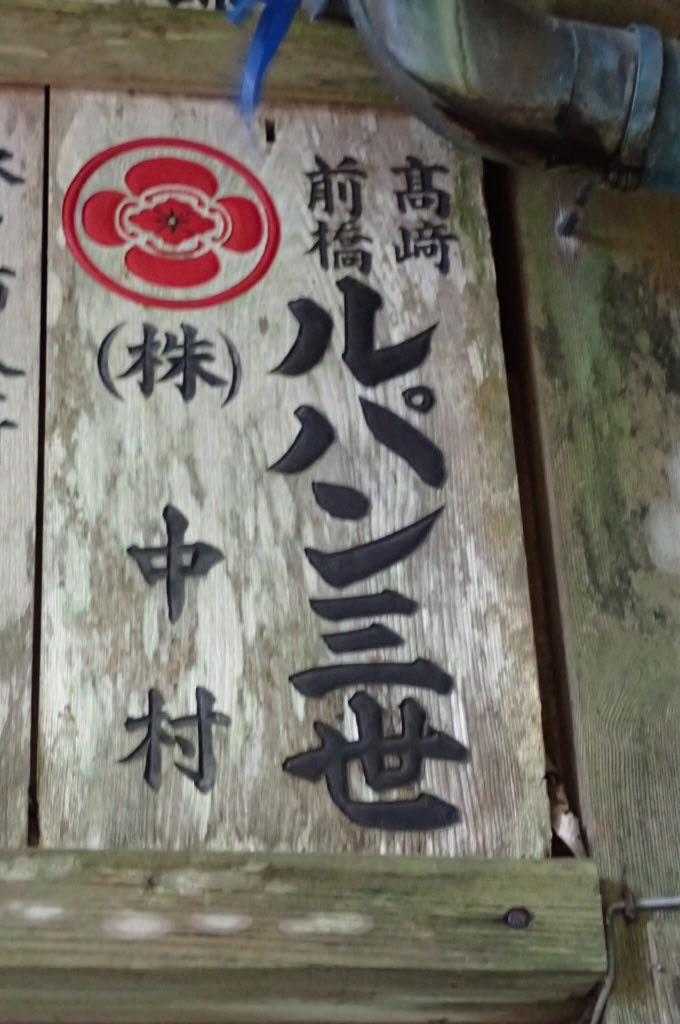 髙﨑
前橋
ルパン三世
(株)中村